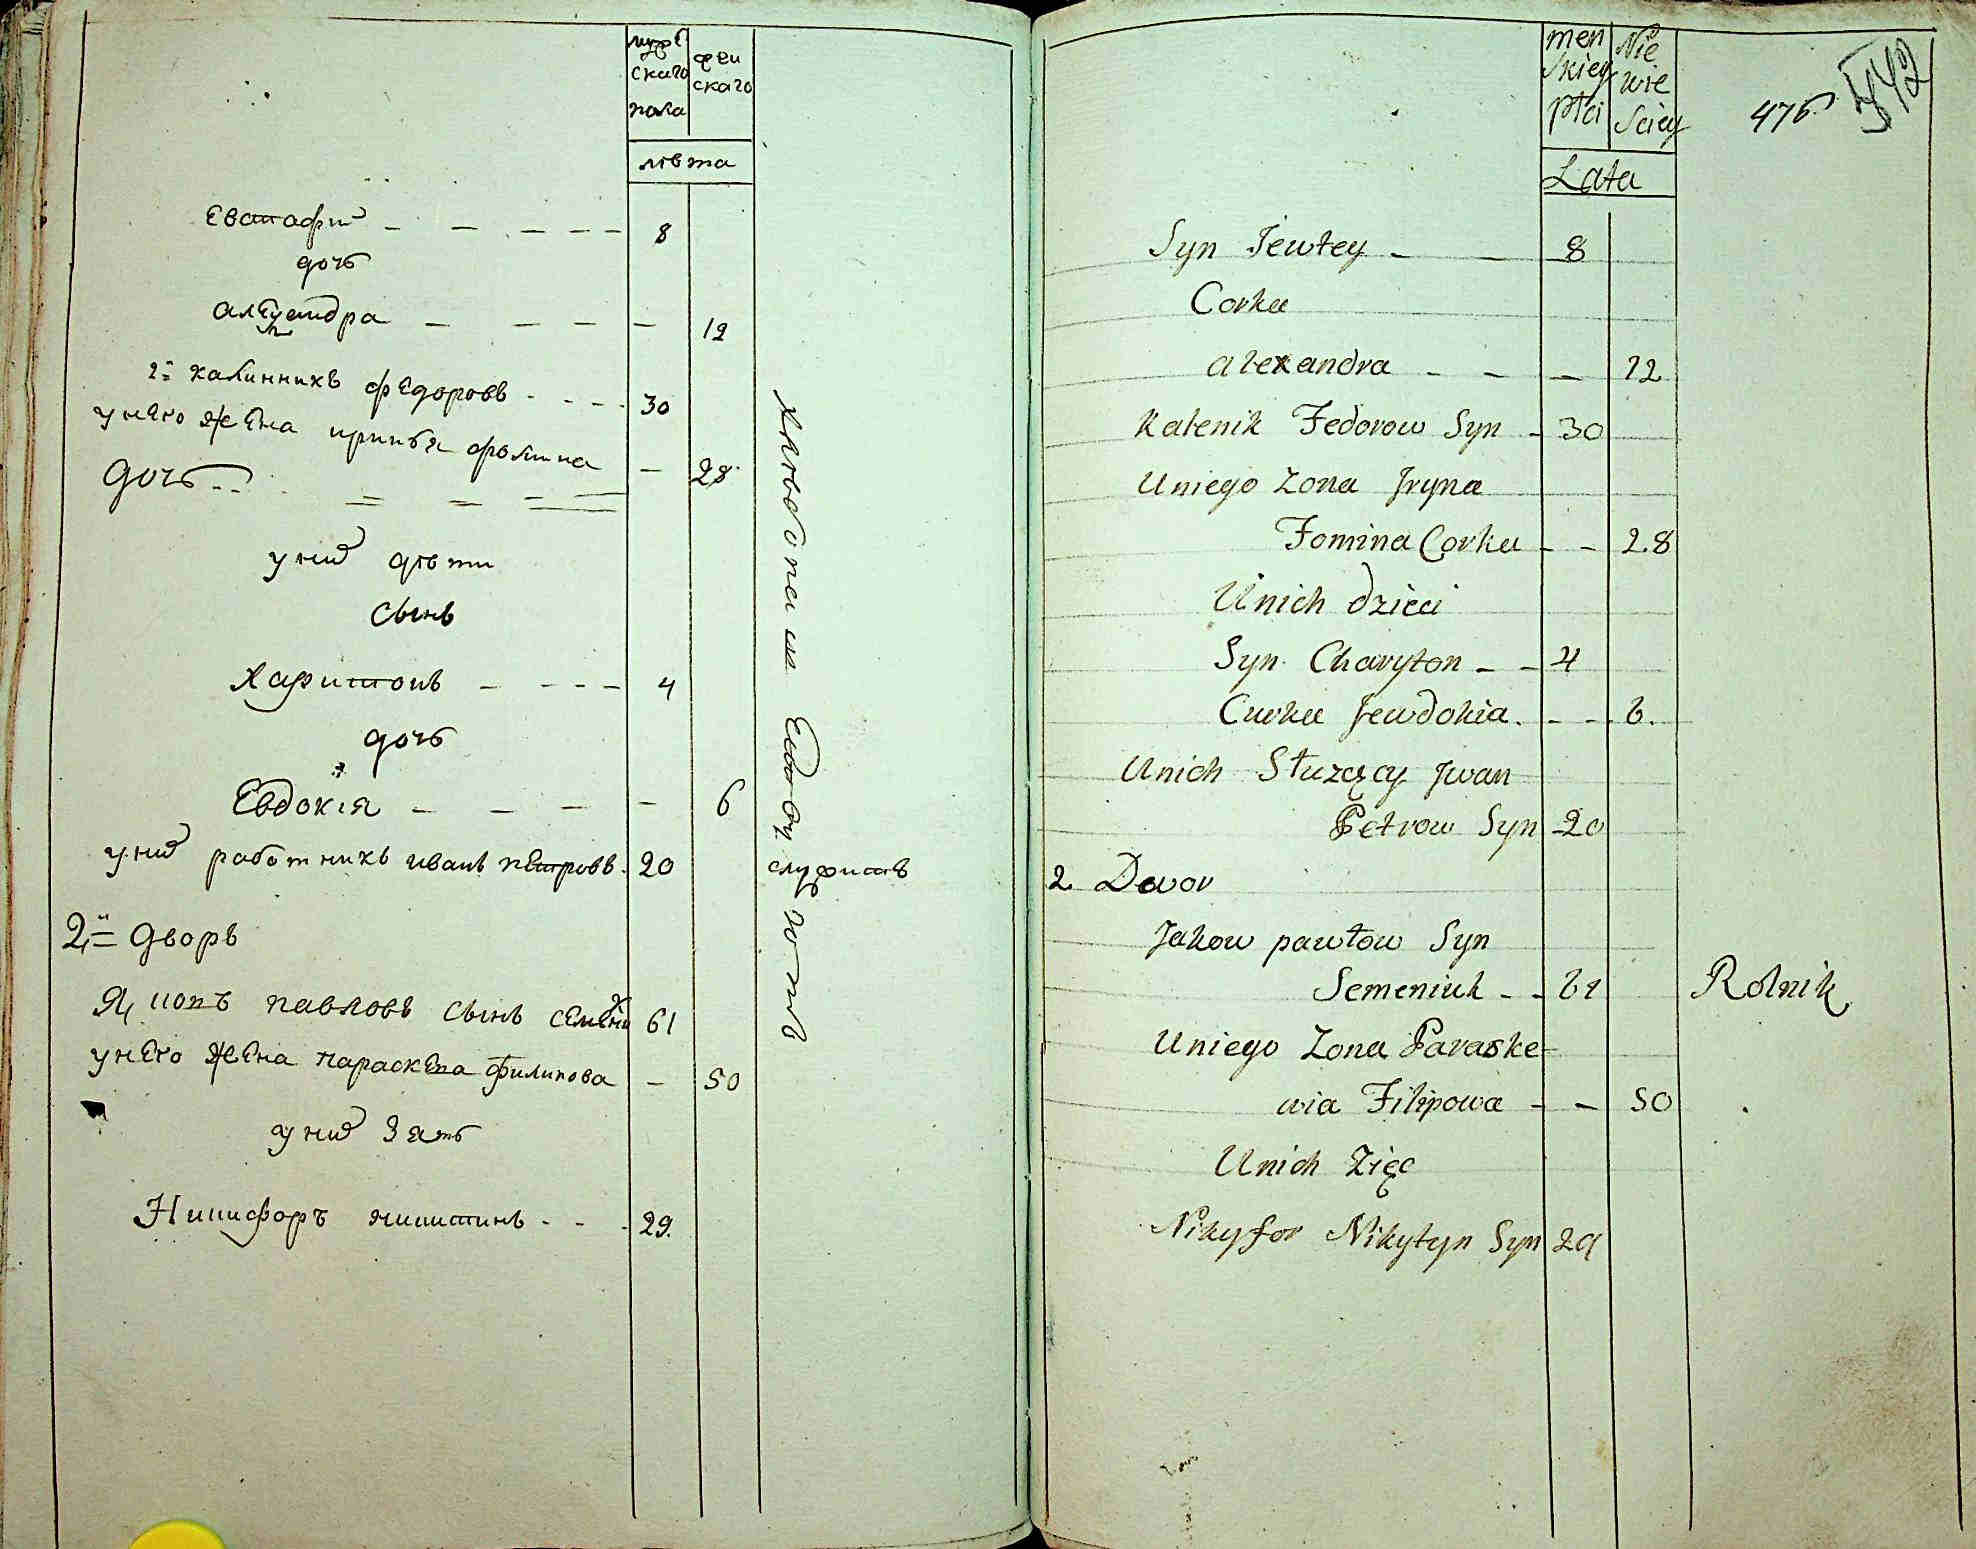 мужскаго пола
женскаго
лѣта
Евстафій 8
дочь
александра 12
2й калинникъ федоровъ 30
у него жена ирина фомина 28
дочь
у них дѣти
сынъ
Харитонъ 4
дочь
Евдокія 6
у них работникъ иванъ петровъ 20
служитъ
2й дворъ
Яковъ павловъ сынъ семенюк 61
у него жена параскева филипова 50
у них зять
Никифоръ никитинъ 29
men
skiey
płci
Nie
wie
sciey
Lata
476
Syn Jewtey 8
Corka
alexandra 12
Kalenik Fedorow Syn 30
Uniego Zona Jryna
Fomina Corka 28
Unich dzieci
Syn Charyton 4
Curka Jewdokia 6.
Unich Służący Jwan
Petrow Syn 20
2 Dwor
Jakow pawłow Syn
Semeniuk 61 Rolnik
Uniego Zona Paraske
wia Filipowa 50
Unich Zięc
Nikyfor Nikytyn Syn 29